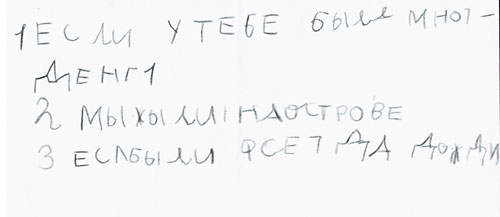 1 ЕСЛИ У ТЕБЕ БЫЛИ МНОГ-
ДЕНГ1
2 МЫ ЖЫЛИ НАОСТРОВЕ
3 ЕСЛБЫЛИ ФСЕГДА ДОЖДИ